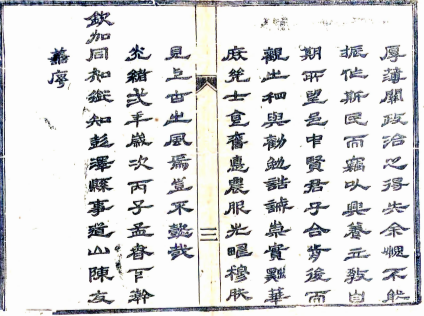 厚薄關政治之得失余媿不能
振作斯民而竊以興養立教自
期所望邑中賢君子合前後而
觀之相與勸勉崇實黜華
庶幾士食舊惪農服先疇穆然
見上古之風焉豈不懿哉
光緒弍年歲次丙子孟春下澣
欽加同知銜知彭澤縣事道山陳友
序
二